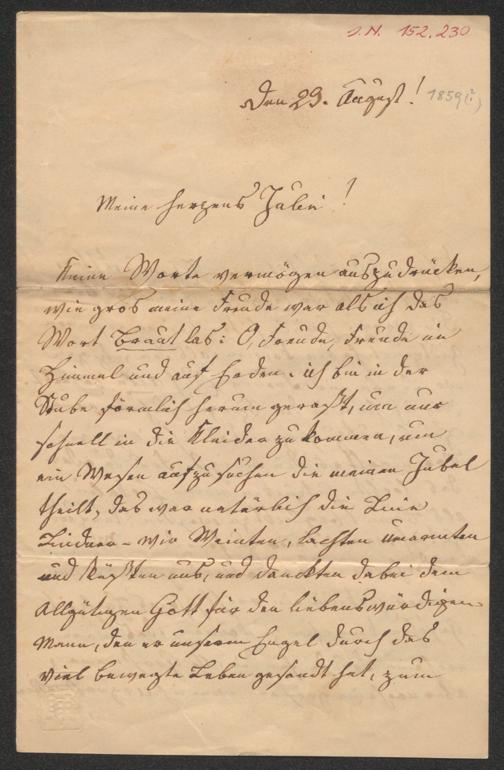 J.N. 152.230
Den 29. August! 1859(?)
Meine herzens Julie!
Keine Worte vermögen auszudrücken,
wie gros meine Freude war als ich das
Wort Braut las: O, Freude, Freude im
Himmel und auf Erden. ich bin in der
Stube förmlich herum gerast, um nur
schnell in die Kleider zu kommen, um
ein Wesen aufzusuchen die meinen Jubel
theilt, das war natürlich die
Lindner - wir Weinten, lachten umarmten
und küßten uns, und dankten dabei dem
Allgütigen Gott für den liebenswürdigen
Mann, den er unserm Engel durch das
viel bewegte Leben gesandt hat, zum